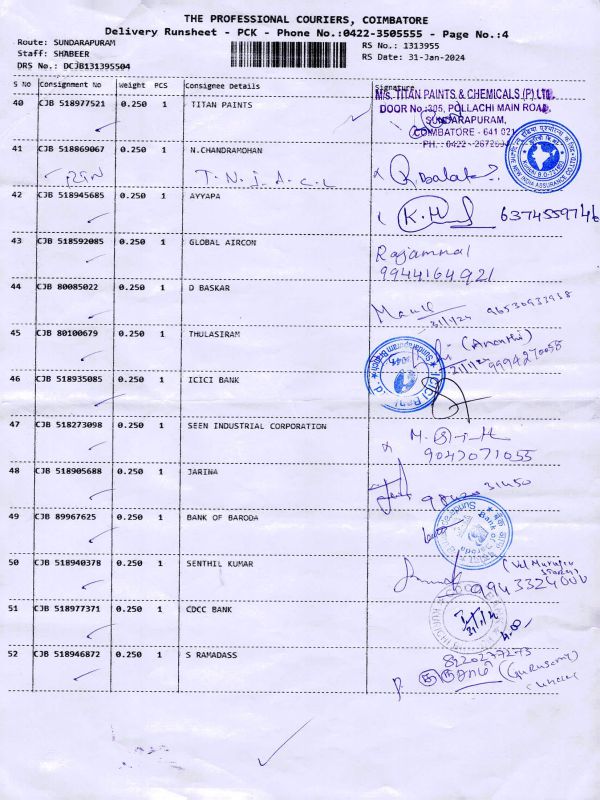 THE PROFESSIONAL COURIERS, COIMBATORE
Delivery Runsheet - PCK - Phone No.:0422-3505555 - Page No.:4
Route: SUNDARAPURAM
Staff: SHABEER
DRS No.: DCJB131395504
RS No.: 1313955
RS Date: 31-Jan-2024
S No Consignment No Weight PCS Consignee Details Signature
40 CJB 518977521 0.250 1 TITAN PAINTS
M/s. TITAN PAINTS & CHEMICALS (P) LTD.
DOOR No: 305, POLLACHI MAIN ROAD,
SUNDARAPURAM,
COIMBATORE - 641 021
41 CJB 518869067 0.250 1 N.CHANDRAMOHAN
T.N.I.A.C.L
42 CJB 518945685 0.250 1 AYYAPA
K.H 6374559746
43 CJB 518592085 0.250 1 GLOBAL AIRCON
Rajammal
9944164921
44 CJB 80085022 0.250 1 D BASKAR
31/1/24 9653093398
45 CJB 80100679 0.250 1 THULASIRAM
(Ananthi)
9994270058
46 CJB 518935085 0.250 1 ICICI BANK
47 CJB 518273098 0.250 1 SEEN INDUSTRIAL CORPORATION
9047071055
48 CJB 518905688 0.250 1 JARINA
49 CJB 89967625 0.250 1 BANK OF BARODA
50 CJB 518940378 0.250 1 SENTHIL KUMAR
9943324006
51 CJB 518977371 0.250 1 CDCC BANK
52 CJB 518946872 0.250 1 S RAMADASS
8220277273
குருசாமி (Gurusamy)